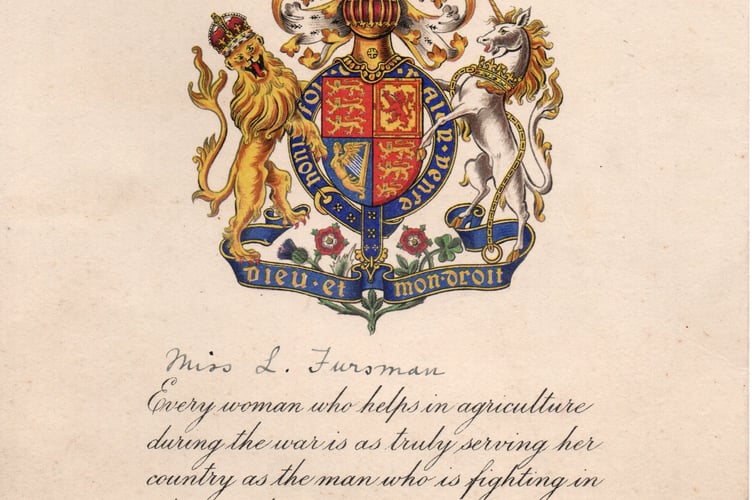 honi soi
mal y pense
DIEU · et mon · droit
Miss L. Fursman
Every woman who helps in agriculture
during the war is as truly serving her
country as the man who is fighting in